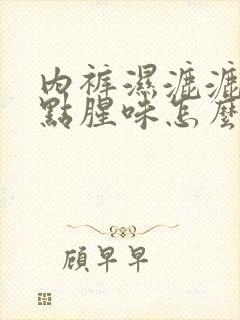 內褲濕漉漉
點腥味怎麼
顧早早